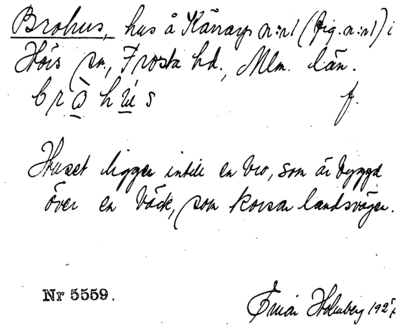 Brohus, hus å Kärray n:r1 (fig. n:r1) i
Höis sn, Frosta hd, Mlm. län.
bròhùs f.
Huset ligger intill en bro, som är byggd
över en bäck, som korsar landsvägen.
Nr 5559. Holmberg 192